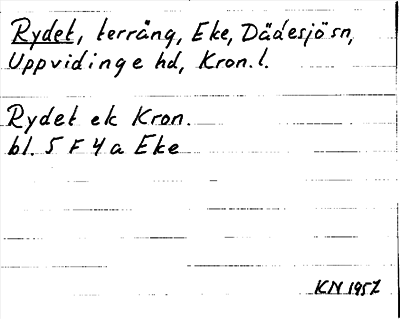 Rydet, terräng, Eke, Dädesjö sn,
Uppvidinge hd, Kron. l.
Rydet ek Kron.
bl. 5 F 4 a Eke
KN 1957